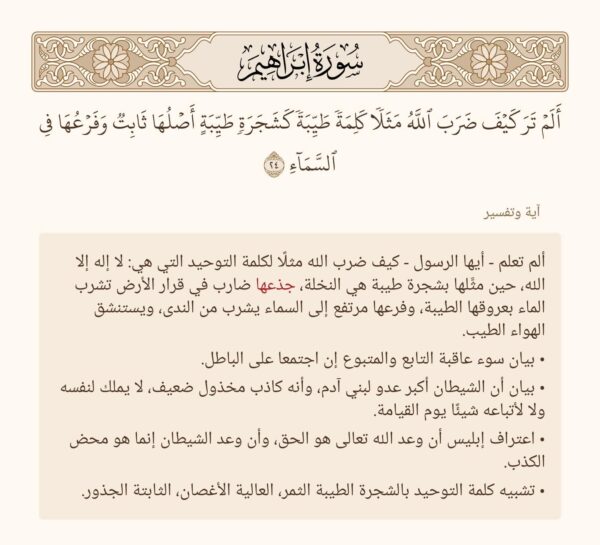 سُورَةُ إِبْرَاهِيمَ
أَلَمۡ تَرَ كَيۡفَ ضَرَبَ ٱللَّهُ مَثَلٗا كَلِمَةٗ طَيِّبَةٗ كَشَجَرَةٖ طَيِّبَةٍ أَصۡلُهَا ثَابِتٞ وَفَرۡعُهَا فِي
ٱلسَّمَآءِ ٢٤
آية وتفسير
ألم تعلم - أيها الرسول - كيف ضرب الله مثلًا لكلمة التوحيد التي هي: لا إله إلا
الله، حين مثَّلها بشجرة طيبة هي النخلة، جذعها ضارب في قرار الأرض تشرب
الماء بعروقها الطيبة، وفرعها مرتفع إلى السماء يشرب من الندى، ويستنشق
الهواء الطيب.
• بيان سوء عاقبة التابع والمتبوع إن اجتمعا على الباطل.
• بيان أن الشيطان أكبر عدو لبني آدم، وأنه كاذب مخذول ضعيف، لا يملك لنفسه
ولا لأتباعه شيئًا يوم القيامة.
• اعتراف إبليس أن وعد الله تعالى هو الحق، وأن وعد الشيطان إنما هو محض
الكذب.
• تشبيه كلمة التوحيد بالشجرة الطيبة الثمر، العالية الأغصان، الثابتة الجذور.